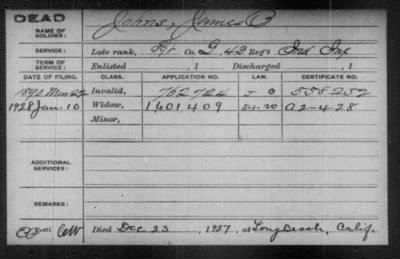 DEAD
NAME OF SOLDIER: Johns, James C
SERVICE: Late rank, Pr. Co. G. 43 Reg't Ind Inf
TERM OF SERVICE: Enlisted , 1 Discharged , 1
DATE OF FILING. CLASS. APPLICATION NO. LAW. CERTIFICATE NO.
1890 Invalid, 762724 558252
1928 Jan 10 Widow, 1,601,409 5-1-20 A2-4-28
Minor,
ADDITIONAL SERVICES:
REMARKS:
Died Dec 23 , 1927, at Long Beach, Calif.